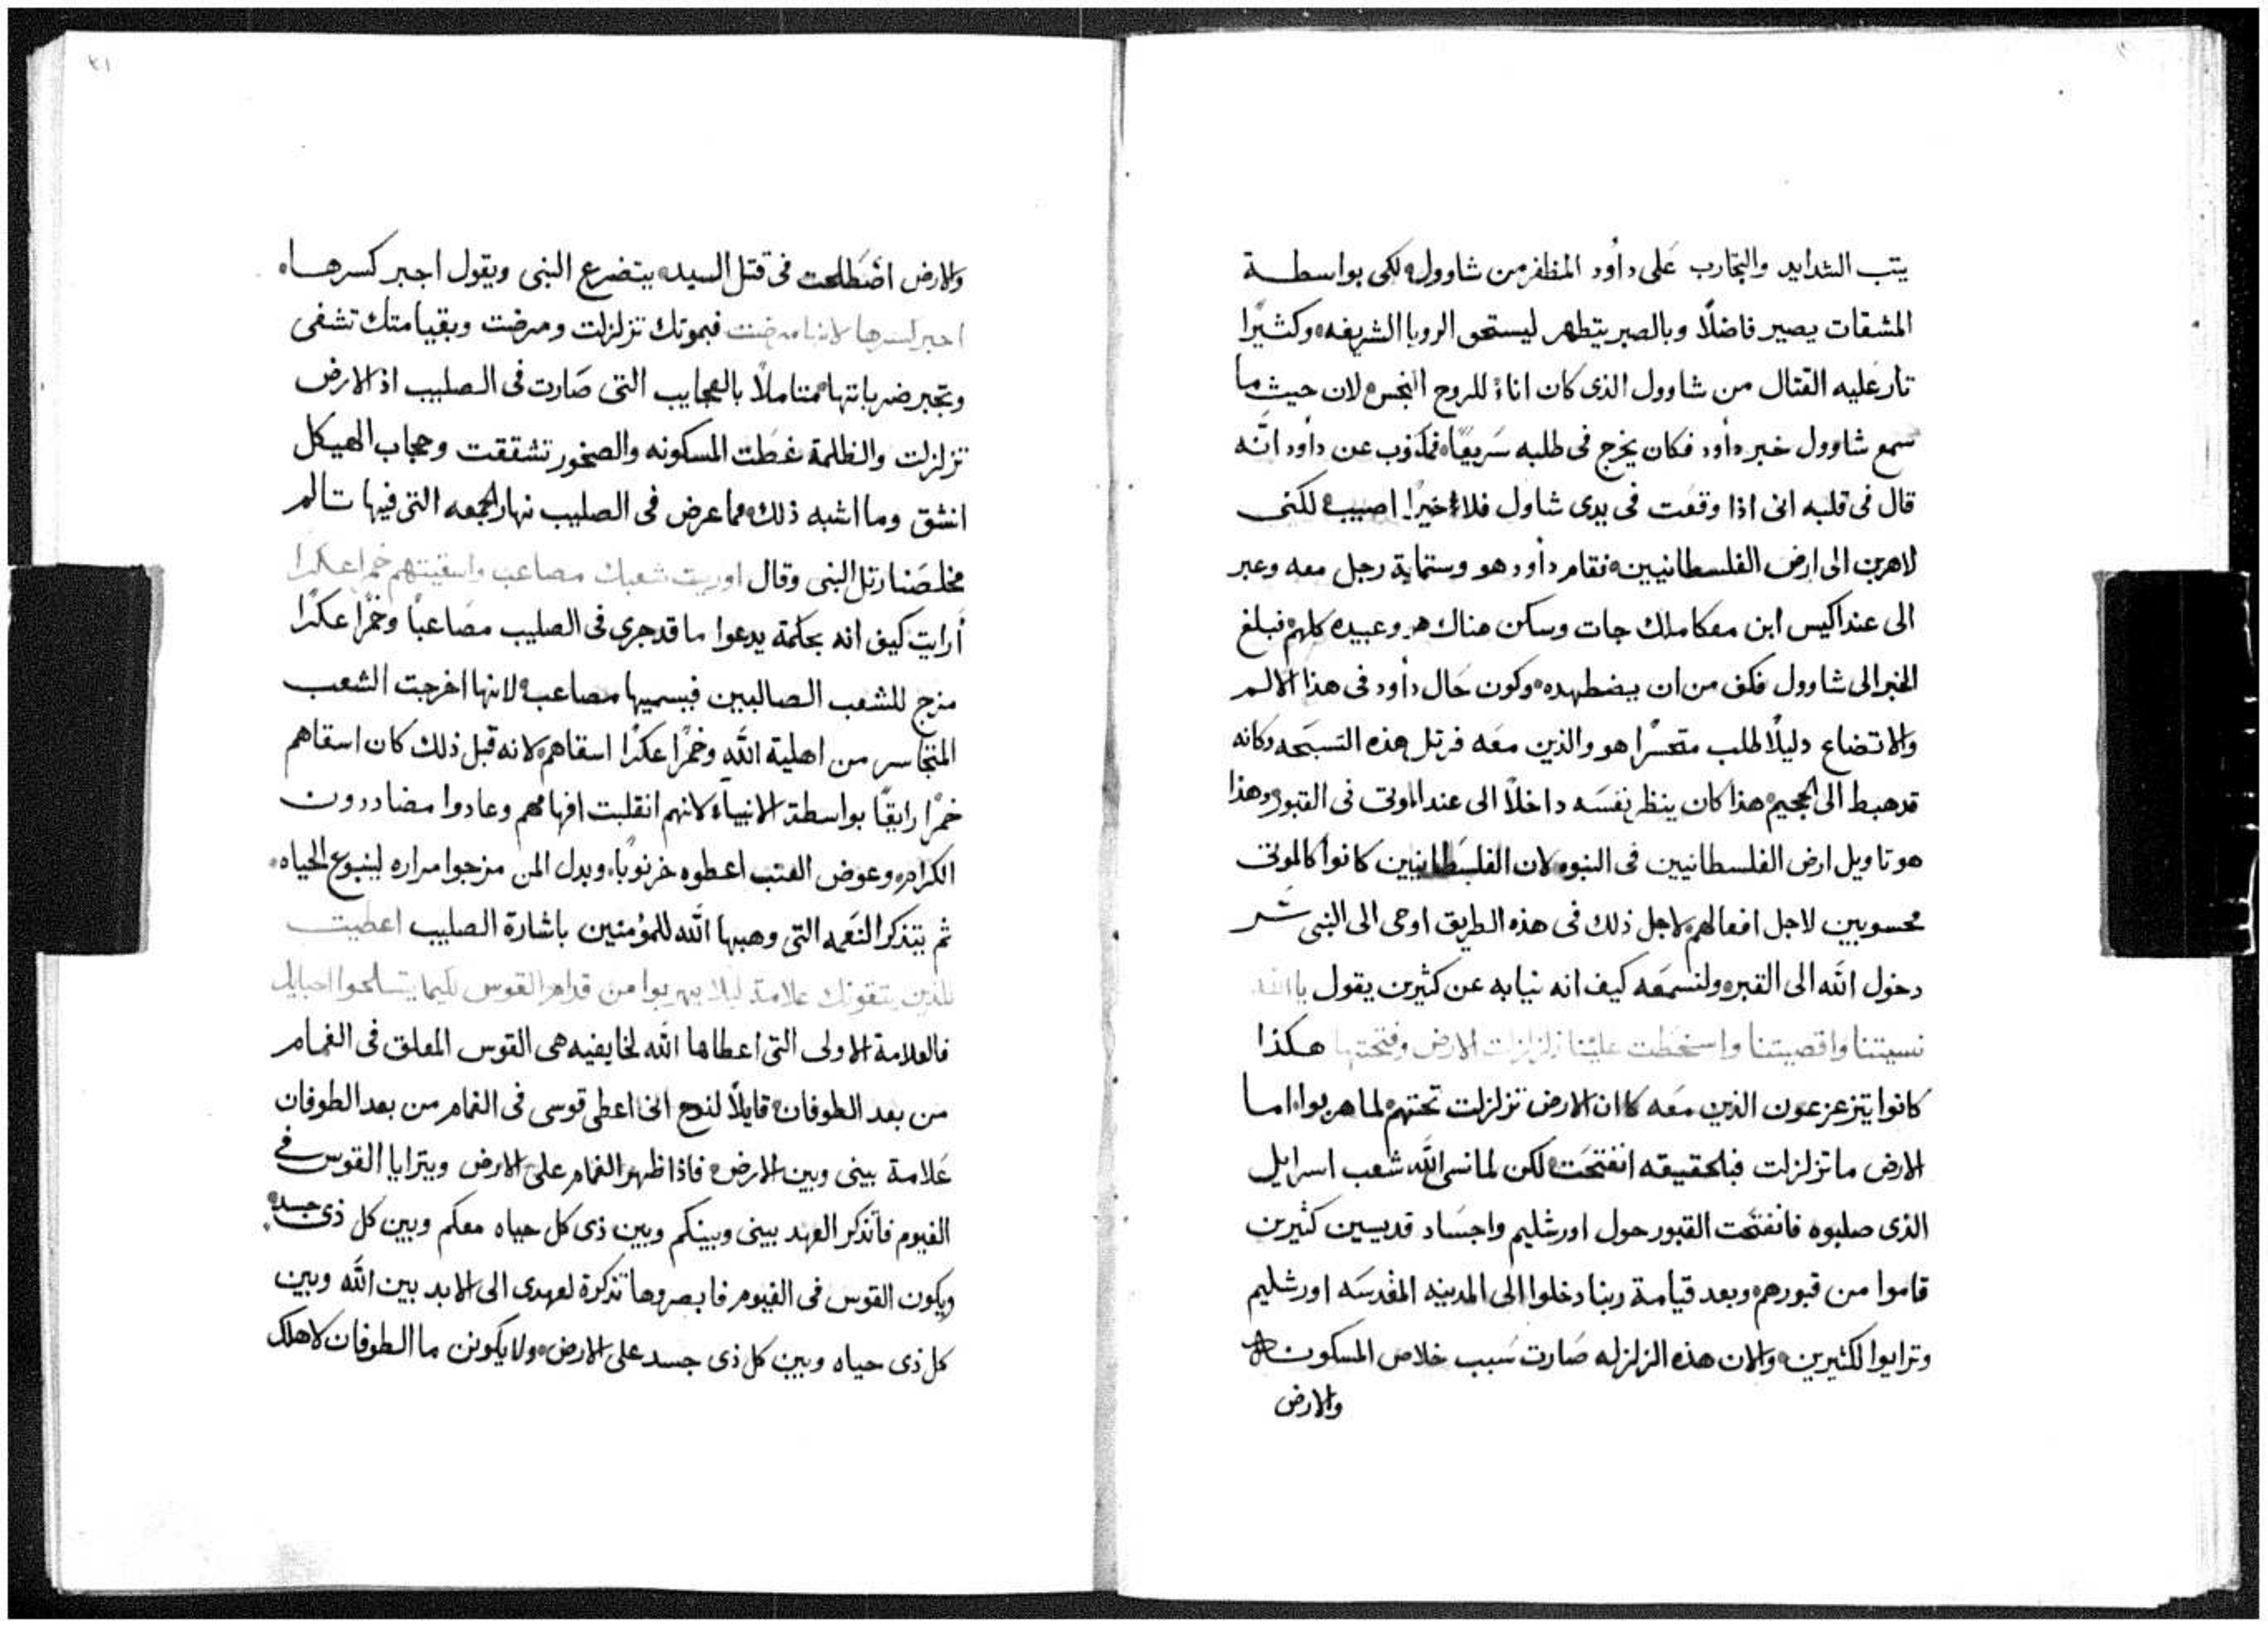 يتب الشدايد والتجارب عَلى داوُد المظفر من شاوول لكى بواسطـة
المشقات يصير فاضلاً وبالصبر يتطهر ليستحق الرويا الشريفه وكثيرًا
تار عَليه القتال من شاوول الذى كان اناءً للروح النجس لان حيث ما
سمع شاوول خبر داود فكان يخرج فى طلبه سَريعًا فمكتوب عن داود انَّه
قال فى قلبه انى اذا وقعَت فى يدى شاول فلا خيرًا اصيب لكنى
لاهرب الى ارض الفلسطانيين فقام داود هو وستماية رجل معه وعبر
الى عند اكيس ابن معكا ملك جات وسكن هناك هو وعبيده كلهم فبلغ
الخبر الى شاوول فكف من ان يضطهده وكون حَال داود فى هذا الالـم
والاتضاع دليلاً لطلب متحسرًا هو والذين معَه فرتل هذه التسبَحه وكانه
قد هبط الى الجحيم هذا كان ينظر نفسَه داخلاً الى عند الموتى فى القبور وهذا
هو تاويل ارض الفلسطانيين فى النبوه لان الفلسَطانيين كانوا كالموتى
محسوبين لاجل افعالهم لاجل ذلك فى هذه الطريق اوحى الى النبى سـر
دخول الله الى القبر ولنسمعَه كيف انه نيابه عن كثيرين يقول يا الله
نسيتنا واقصيتنا واسخطت علينا زلزلت الارض وفتحتها هـكذا
كانوا يتزعزعون الذين معَه كان الارض تزلزلت تحتهم لما هربوا اما
الارض ما تزلزلت فبلحقيقه انفتحَت لكن لما نسى الله شعب اسرايل
الذى صلبوه فانفتحَت القبور حول اورشليم واجسَاد قديسين كثيرين
قاموا من قبورهم وبعد قيامة ربنا دخلوا الى المدينه المقدسَه اورشليم
وترايوا لكثيرين والان هذه الزلزله صَارت سَبب خلاص المسكونـه
والارض
٢١
والارض اضطلحت فى قتل السيد يتضرع النبى ويقول اجبر كسرهـا
اجبر كسرها لانها مرضت فبموتك تزلزلت ومرضت وبقيامتك تشفى
وتجبر ضرباتها متاملاً بالعجايب التى صَارت فى الصليب اذ الارض
تزلزلت والظلمة غطت المسكونه والصخور تشققت وحجاب الهيكل
انشق وما اشبه ذلك مما عرض فى الصليب نهار الجمعه التى فيها تـالم
مخلصَنا رتل النبى وقال اوريت شعبك مصاعب واسقيتهم خمرًا عكرًا
أرايت كيف انه بحكمة يدعوا ما قد جرى فى الصليب مصَاعبًا وخمرًا عكرًا
مزج للشعب الصالبين فيسميها مصاعب لانها اخرجت الشعب
المتجاسر من اهلية الله وخمرًا عكرًا اسقاهم لانه قبل ذلك كان اسقاهم
خمرًا رايقًا بواسطة الانبياء لانهم انقلبت افهامهم وعادوا مضاددون
الكرام وعوض العنب اعطوه خرنوبًا وبدل المن مزجوا مراره لينبوع الحياه
ثم يتذكر النعَمه التى وهبها الله للمؤمنين باشارة الصليب اعطيت
للذين يتقونك علامة ليلا يهربوا من قدام القوس لكيما يتسلحوا احبايك
فالعلامة الاولى التى اعطاها الله لخايفيه هى القوس المعلق فى الغمام
من بعد الطوفان قايلاً لنوح انى اعطى قوسى فى الغمام من بعد الطوفان
عَلامة بينى وبين الارض فاذا ظهر الغمام على الارض ويترايا القوس فى
الغيوم فأتذكر العهد بينى وبينكم وبين ذى كل حياه معكم وبين كل ذى جسد
ويكون القوس فى الغيوم فابصروها تذكرة لعهدى الى الابد بين الله وبين
كل ذى حياه وبين كل ذى جسد على الارض ولا يكونن ما الطوفان لاهلاك